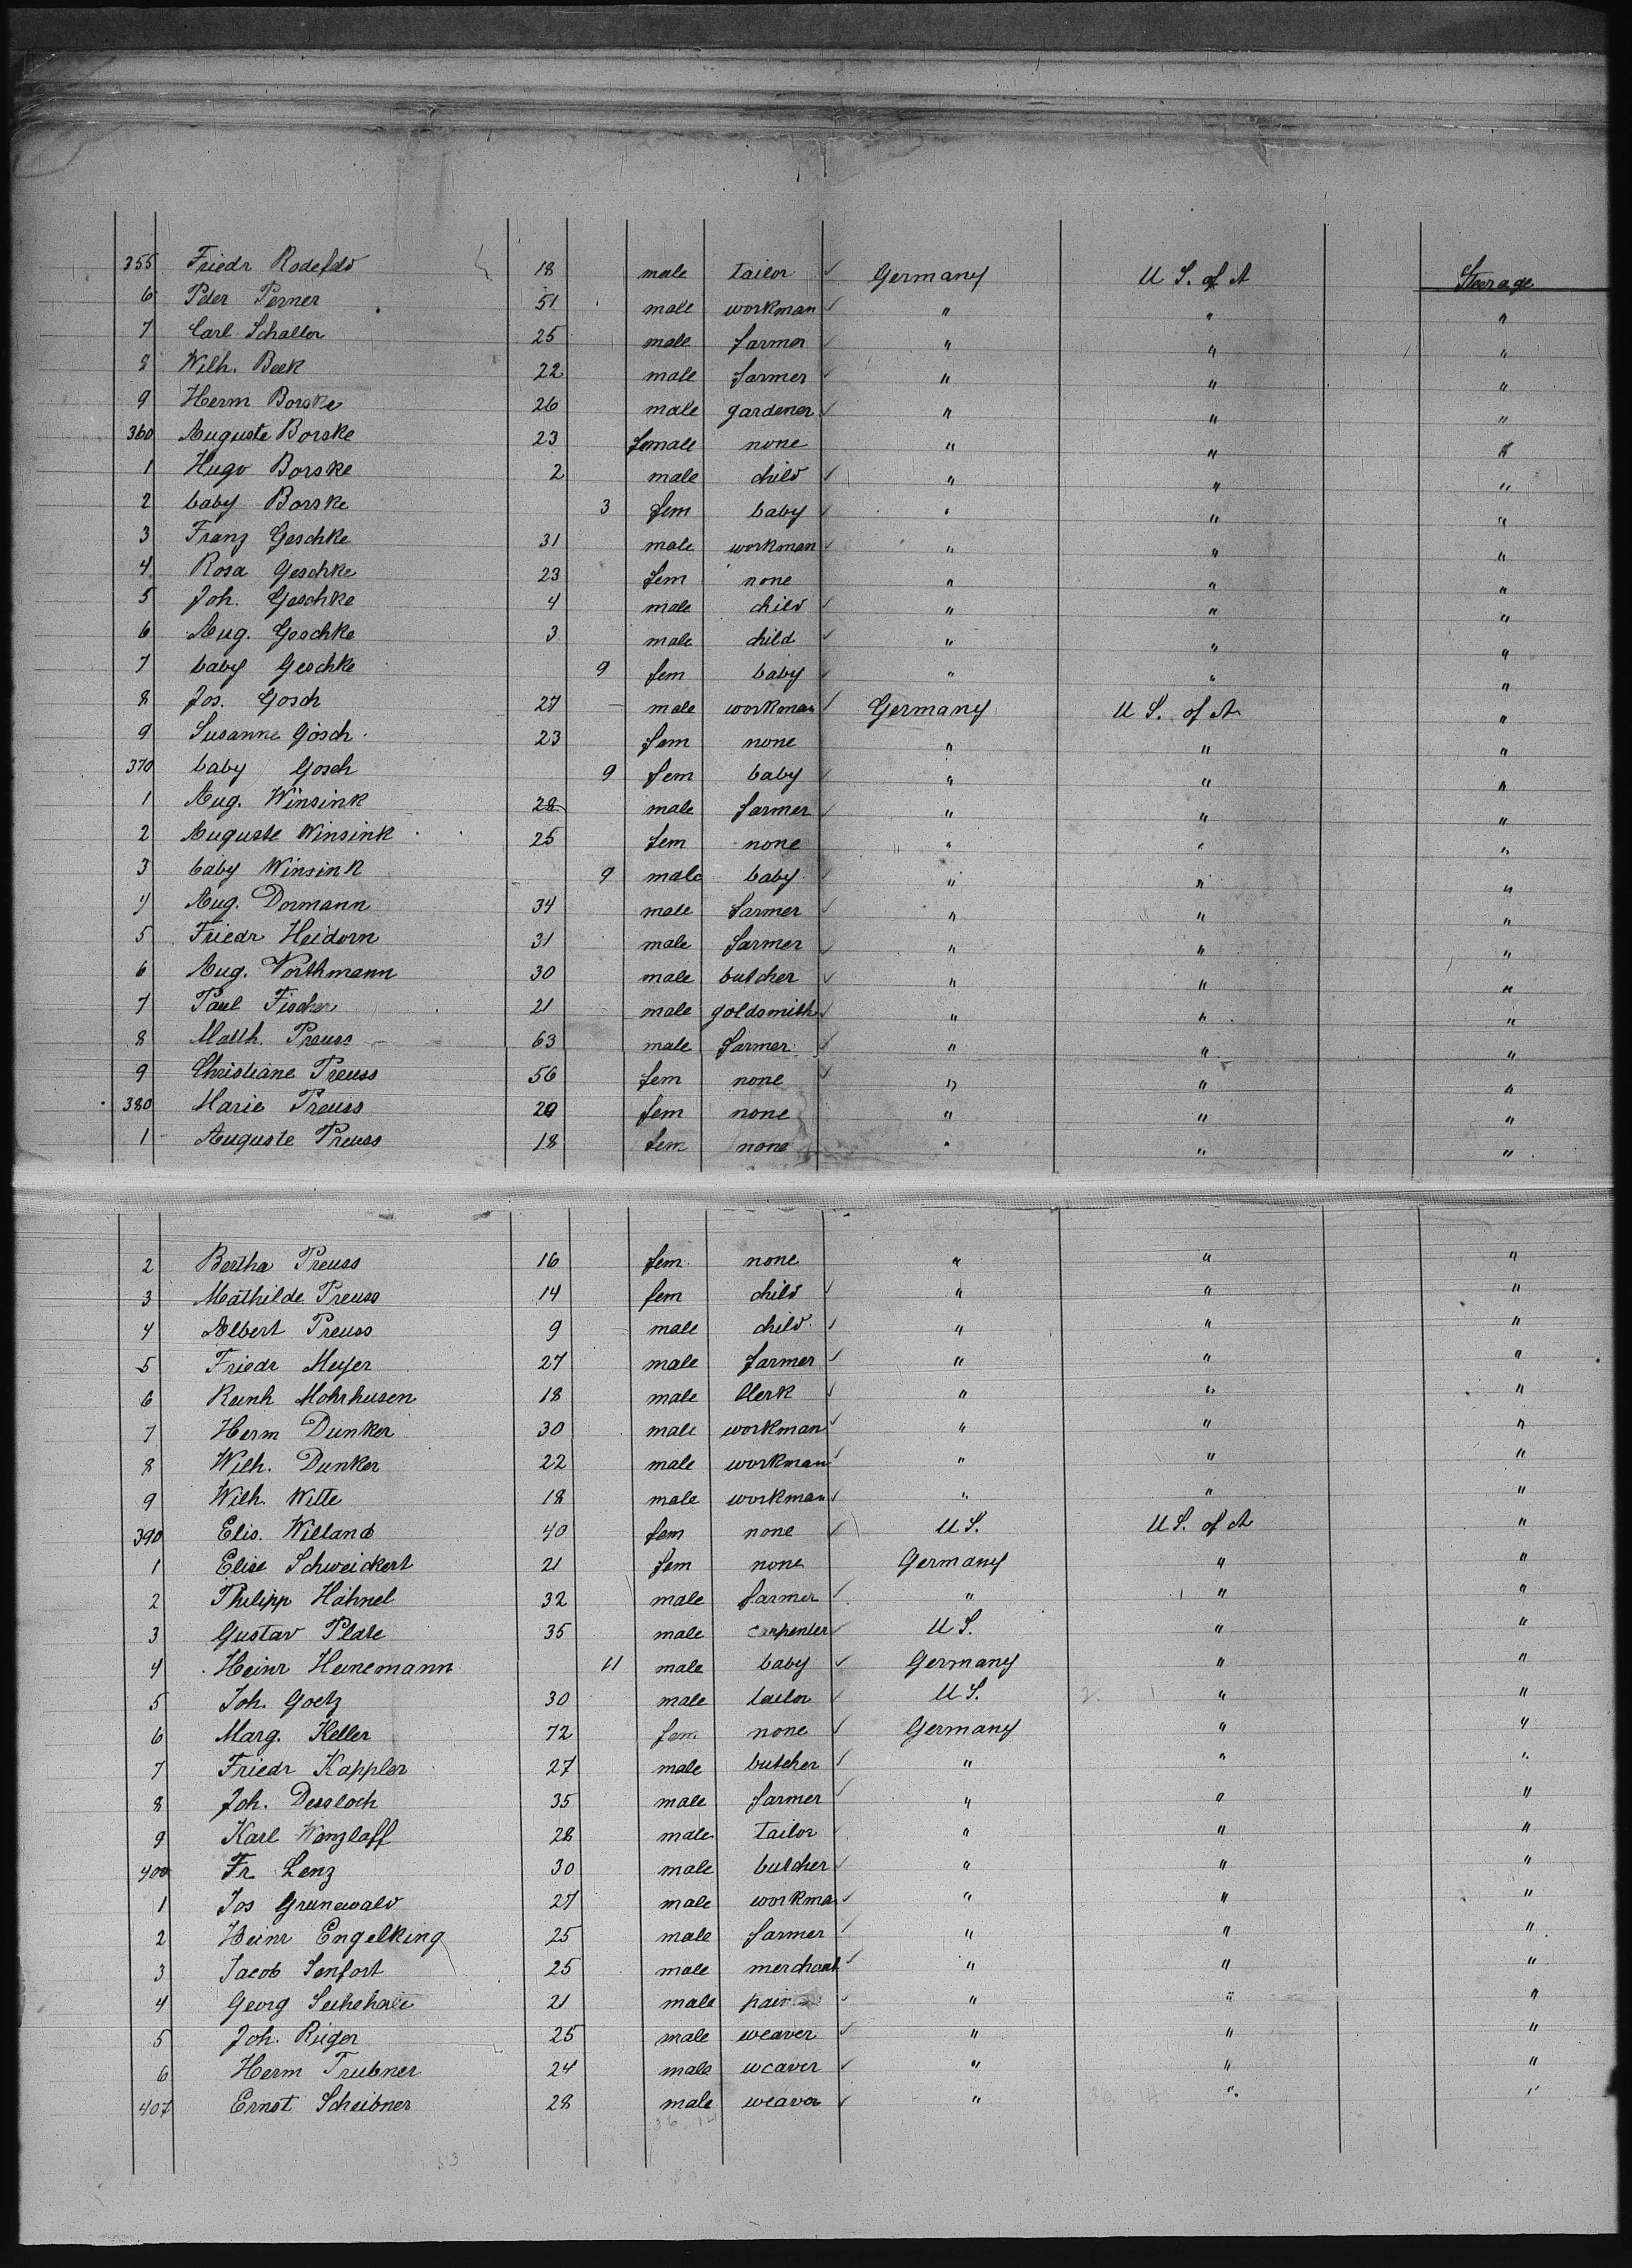 355 Friedr Rodefeld 18 male tailor Germany U S. of A Steerage
6 Peter Perner 51 male workman " " "
7 Carl Schaller 25 male farmer " " "
8 Wilh. Beek 22 male farmer " " "
9 Herm Borske 26 male gardener " " "
360 Auguste Borske 23 female none " " "
1 Hugo Borske 2 male child " " "
2 baby Borske 3 fem baby " " "
3 Franz Geschke 31 male workman " " "
4 Rosa Geschke 23 fem none " " "
5 Joh. Geschke 4 male child " " "
6 Aug. Geschke 3 male child " " "
7 baby Geschke 9 fem baby " " "
8 Jos. Gosch 27 male workman Germany U S. of A "
9 Susanne Gosch 23 fem none " " "
370 baby Gosch 9 fem baby " " "
1 Aug. Winsink 28 male farmer " " "
2 Auguste Winsink 25 fem none " " "
3 baby Winsink 9 male baby " " "
4 Aug. Dormann 34 male farmer " " "
5 Friedr Heidorn 31 male farmer " " "
6 Aug. Vorthmann 30 male butcher " " "
7 Paul Fischer 21 male goldsmith " " "
8 Matth. Preuss 63 male farmer " " "
9 Christiane Preuss 56 fem none " " "
380 Marie Preuss 20 fem none " " "
1 Auguste Preuss 18 fem none " " "
2 Bertha Preuss 16 fem none " " "
3 Mathilde Preuss 14 fem child " " "
4 Albert Preuss 9 male child " " "
5 Friedr Meyer 27 male farmer " " "
6 Reinh Mohrhusen 18 male Clerk " " "
7 Herm Dunker 30 male workman " " "
8 Wilh. Dunker 22 male workman " " "
9 Wilh. Witte 18 male workman " " "
390 Elis. Willand 40 fem none U S. U S. of A "
1 Elise Schweickert 21 fem none Germany " "
2 Philipp Hähnel 32 male farmer " " "
3 Gustav Plate 35 male carpenter U S. " "
4 Heinr Heinemann 11 male baby Germany " "
5 Joh. Goetz 30 male tailor U S. " "
6 Marg. Keller 72 fem. none Germany " "
7 Friedr Kappler 27 male butcher " " "
8 Joh. Dessloch 35 male farmer " " "
9 Karl Wenzlaff 28 male tailor " " "
400 Fr. Lenz 30 male butcher " " "
1 Jos Grunewald 27 male workma " " "
2 Heinr Engelking 25 male farmer " " "
3 Jacob Senfort 25 male merchant " " "
4 Georg 21 male " " "
5 Joh. Rieger 25 male weaver " " "
6 Herm Trubner 24 male weaver " " "
407 Ernst Scheibner 28 male weaver " " "